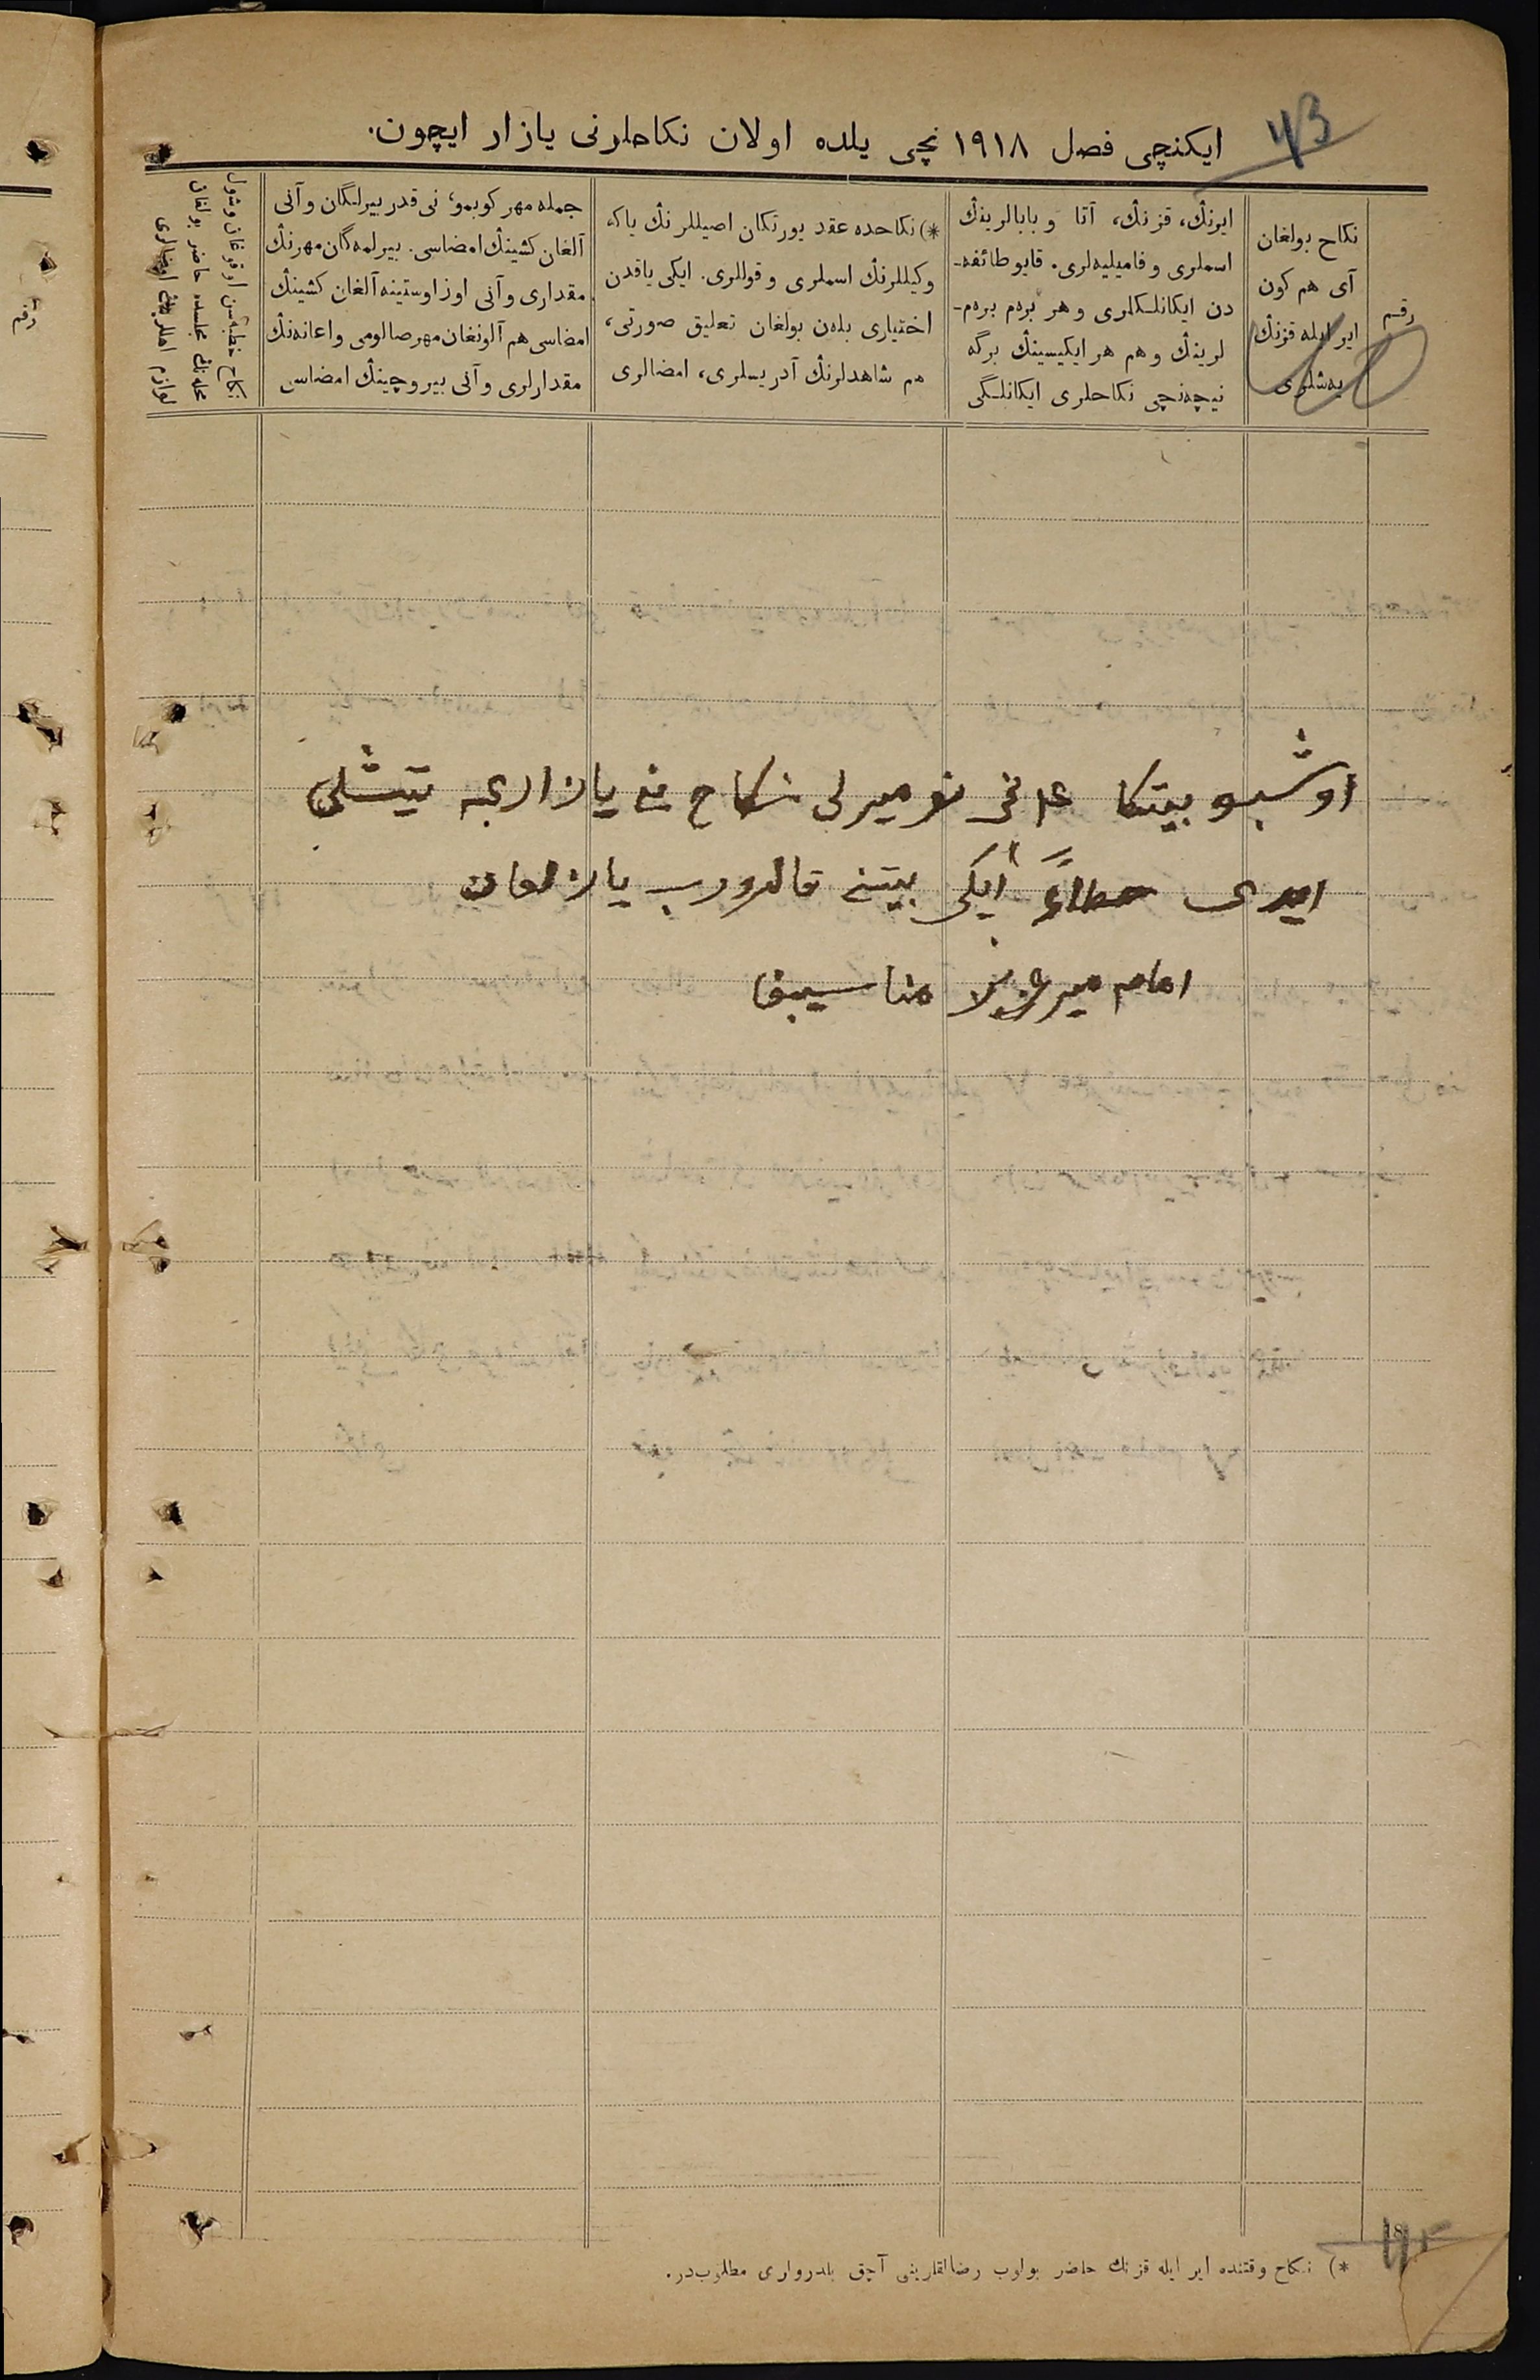 43
ایکنچی فصل ۱۹۱۸ نچی یلده اولان نکاحلرنی یازار ایچون.
رقم
نکاح بولغان
آی هم کون
ایر ایله قزنڭ
یەشلری
ایرنڭ، قزنڭ، آتا و بابالرینڭ
اسملری و فامیلیەلری. قایو طائفه‌-
دن ایکانلکلری و هر برەم برەم-
لرینڭ و هم هر ایکیسینڭ برگه
نیچەنچی نکاحلری ایکانلگی
*) نکاحده عقد یورتکان اصیللرنڭ یاکه
وکیللرنڭ اسملری و قوللری. ایکی یاقدن
اختیاری بلەن بولغان تعلیق صورتی،
هم شاهدلرنڭ آدریسلری، امضالری
جمله مهر کوبمو، نی قدر بیرلگان و آنی
آلغان کشینڭ امضاسی. بیرلمەگان مهرنڭ
مقداری و آنی اوز اوستینه آلغان کشینڭ
امضاسی هم آلونغان مهر صالومی و اعانەنڭ
مقدارلری و آنی بیروچینڭ امضاسی
نکاح خطبەسن اوقوغان و شول
محلەنڭ مجلسده حاضر بولغان
لوازم اهللرینڭ امضالری
اوشبو بیتکا نومیرلی نکاح نی یازارغه تیشلی
ایدی خطاءً ایکی بیتنی قالدروب یازلغان
امام
18
*) نکاح وقتنده ایر ایله قزنڭ حاضر بولوب رضالقلرینی آچق بلدرولری مطلوب‌در.